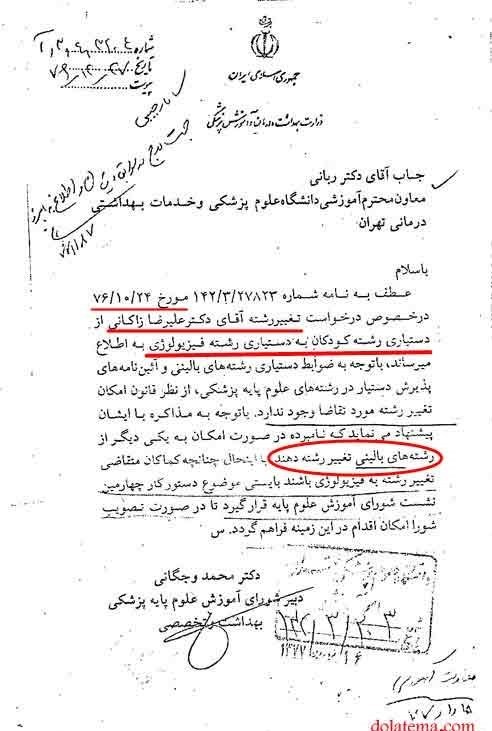 شماره
تاریخ
پیوست
جمهوری اسلامی ایران
وزارت بهداشت، درمان و آموزش پزشکی
جناب آقای دکتر ربانی
معاون محترم آموزشی دانشگاه علوم پزشکی وخدمات بهداشتی
درمانی تهران
باسلام
عطف به نامه شماره ۱۴۲/۳/۲۷۸۲۳ مورخ ۷۶/۱۰/۲۴
درخصوص درخواست تغییررشته آقای دکترعلیرضا زاکانی از
دستیاری رشته کودکان به دستیاری رشته فیزیولوژی به اطلاع
میرساند، باتوجه به ضوابط دستیاری رشته‌های بالینی و آئین‌نامه‌های
پذیرش دستیار در رشته‌های علوم پایه پزشکی، از نظر قانون امکان
تغییر رشته مورد تقاضا وجود ندارد. باتوجه به مذاکره با ایشان
پیشنهاد می نماید که نامبرده در صورت امکان به یکی دیگر از
رشته‌های بالینی تغییر رشته دهند با اینحال چنانچه کماکان متقاضی
تغییر رشته به فیزیولوژی باشند بایستی موضوع دستورکار چهارمین
نشست شورای آموزش علوم پایه قرارگیرد تا در صورت تصویب
شورا امکان اقدام در این زمینه فراهم گردد. س
دکتر محمد وجگانی
دبیر شورای آموزش علوم پایه پزشکی
بهداشت و تخصصی
dolatema.com